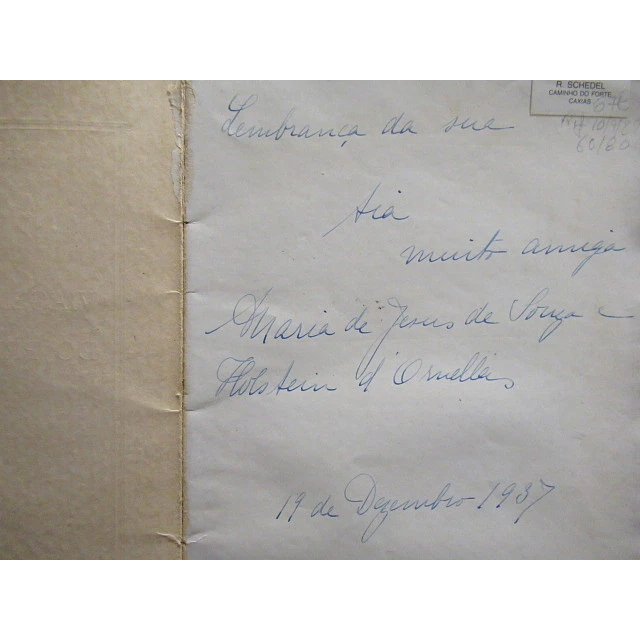 R. SCHEDEL
CAMINHO DO FORTE
CAXIAS
Lembrança da sua
tia
muito amiga
Maria de Jesus de Souza e
Holstein d'Ornellas
19 de Dezembro 1937